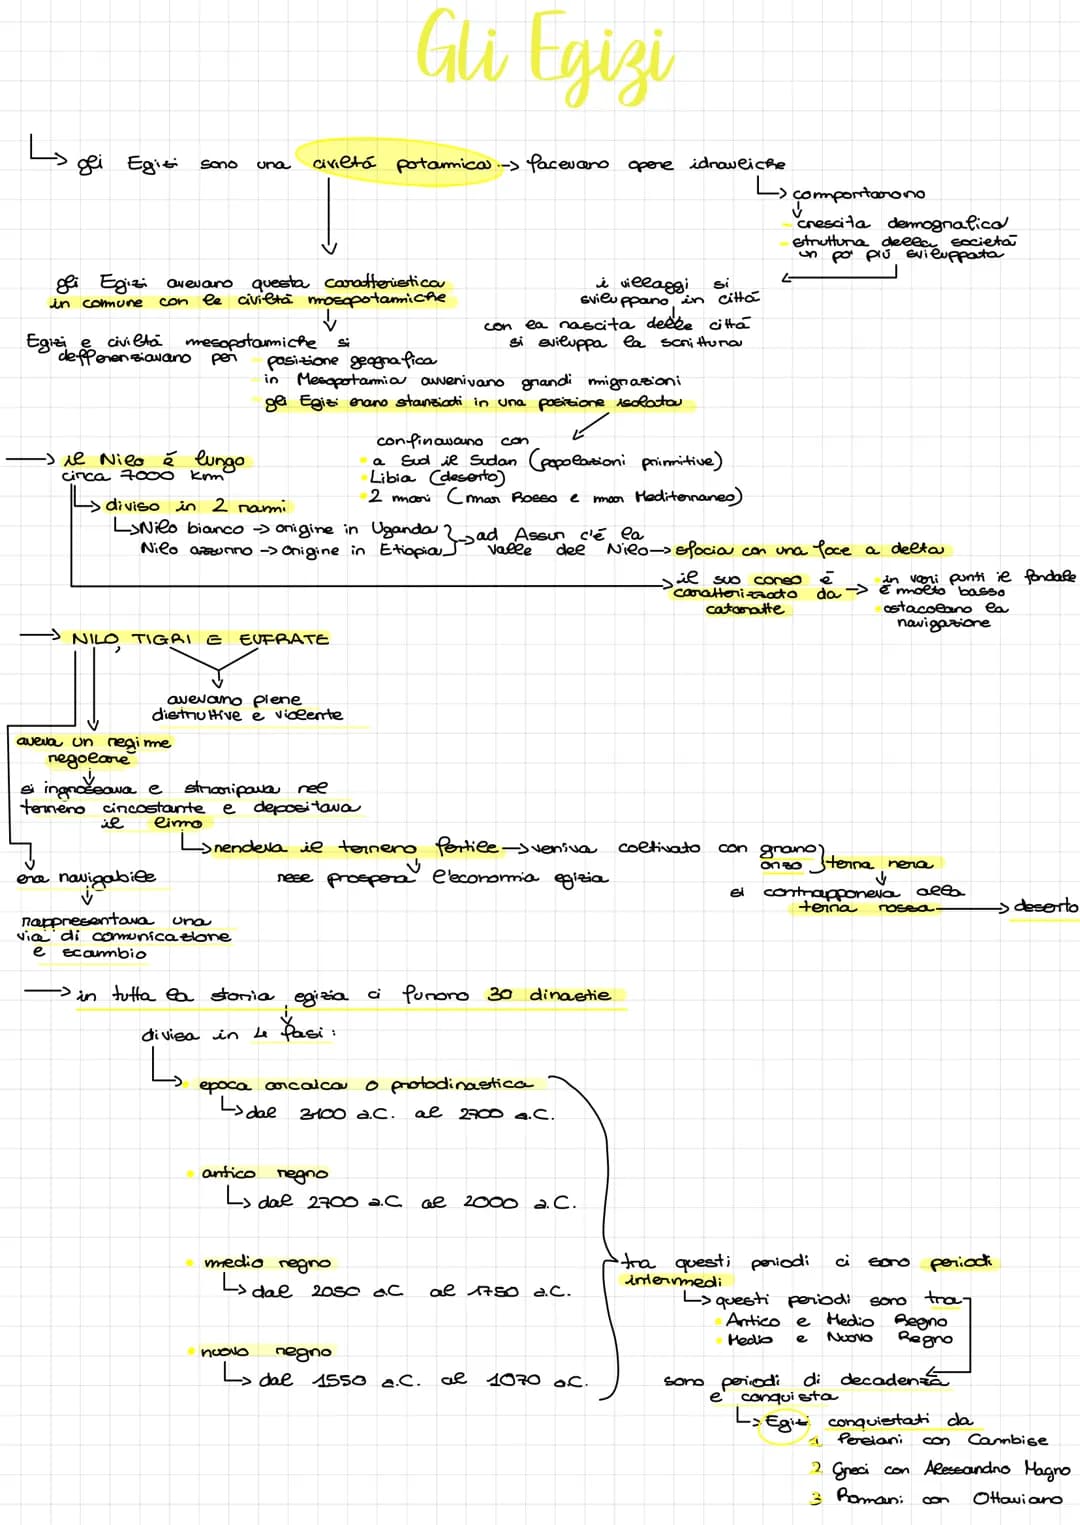 Gli Egizi
gli Egizi sono una civiltá potamica → facevano opere idrauliche
comportarono
crescita demografica
struttura della società
un po' più sviluppata
gli Egizi avevano questa caratteristica
in comune con le civiltà mosopotamiche
i villaggi si
sviluppano in città
con la nascita delle città
si sviluppa la scrittura
Egizi e civiltà mesopotamiche si
defferenziavano per
posizione geografica
in Mesopotamia avvenivano grandi migrazioni
gli Egizi erano stanziati in una posizione isolata
confinavano con
a Sud il Sudan (popolazioni primitive)
Libia (deserto)
2 mari (mar Rosso e mar Mediterraneo)
→ il Nilo é lungo
circa 7000 km
diviso in 2 rami
Nilo bianco → origine in Uganda
Nilo azzurro → origine in Etiopia
→ ad Assun c'é la
valle del Nilo → sfocia con una foce a delta
il suo corso é
caratterizzato da →
cateratte
in vari punti il fondale
é molto basso
ostacolano la
navigazione
→ NILO, TIGRI E EUFRATE
avevano piene
distruttive e violente
aveva un regime
regolare
si ingrossava e straripava nel
terreno circostante e depositava
il limo
rendeva il terreno fertile → veniva coltivato con grano
orzo
terra nera
era navigabile
rese prospera l'economia egizia
si contrapponeva alla
terra rossa → deserto
rappresentava una
via di comunicazione
e scambio
→ in tutta la storia egizia ci furono 30 dinastie
divisa in 4 fasi:
epoca arcaica o protodinastica
dal 3100 a.C. al 2700 a.C.
antico regno
dal 2700 a.C. al 2000 a.C.
medio regno
dal 2050 a.C al 1750 a.C.
nuovo regno
dal 1550 a.C. al 1070 a.C.
tra questi periodi ci sono periodi
intermedi
questi periodi sono tra
Antico e Medio Regno
Medio e Nuovo Regno
sono periodi di decadenza
e conquista
Egizi conquistati da
1 Persiani con Cambise
2 Greci con Alessandro Magno
3 Romani con Ottaviano